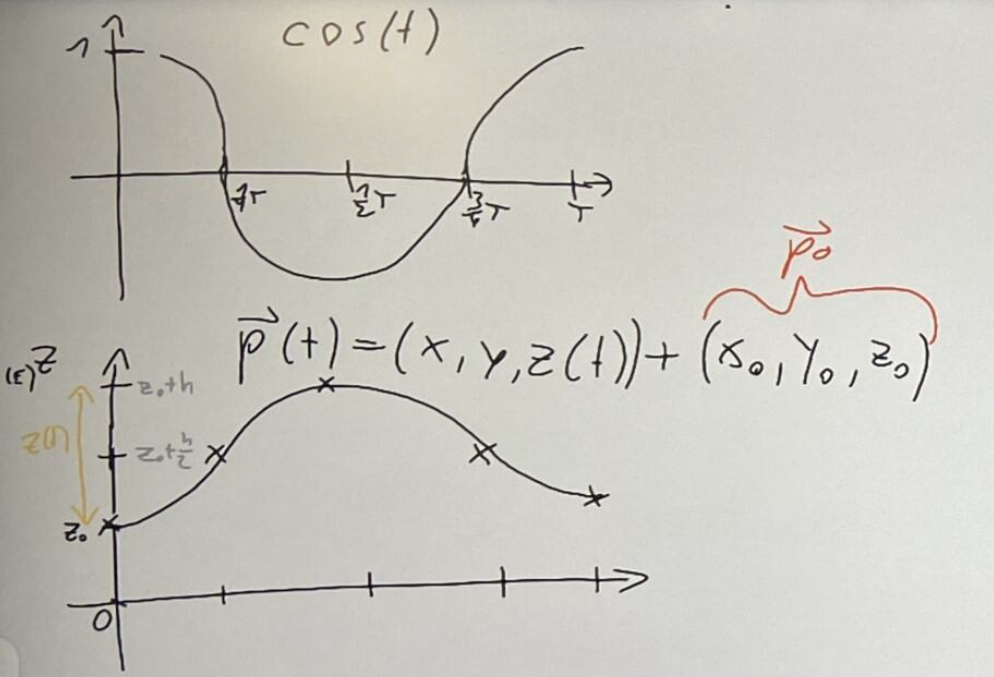 cos(t)
1
¼T ½T ¾T T
p⃗₀
p⃗(t)=(x,y,z(t))+(x₀,y₀,z₀)
z
z₀+h
z(t)
z₀+h/2
z₀
0